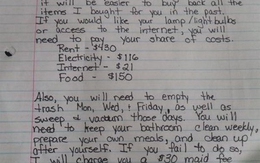 it will be easier to buy back all the
items I bought for you in the past.
If you would like your lamp/light bulbs
or access to the internet, you will
need to pay your share of costs.
Rent - $430
Electricity - $116
Internet - $21
Food - $150
Also, you will need to empty the
trash Mon, Wed, + Friday, as well as
sweep + vacuum those days. You will
need to keep your bathroom clean weekly,
prepare your own meals, and clean up
after yourself. If you fail to do so,
I will charge you a $30 maid fee